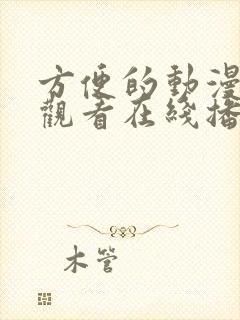 方便的動漫
觀看在綫播
木管